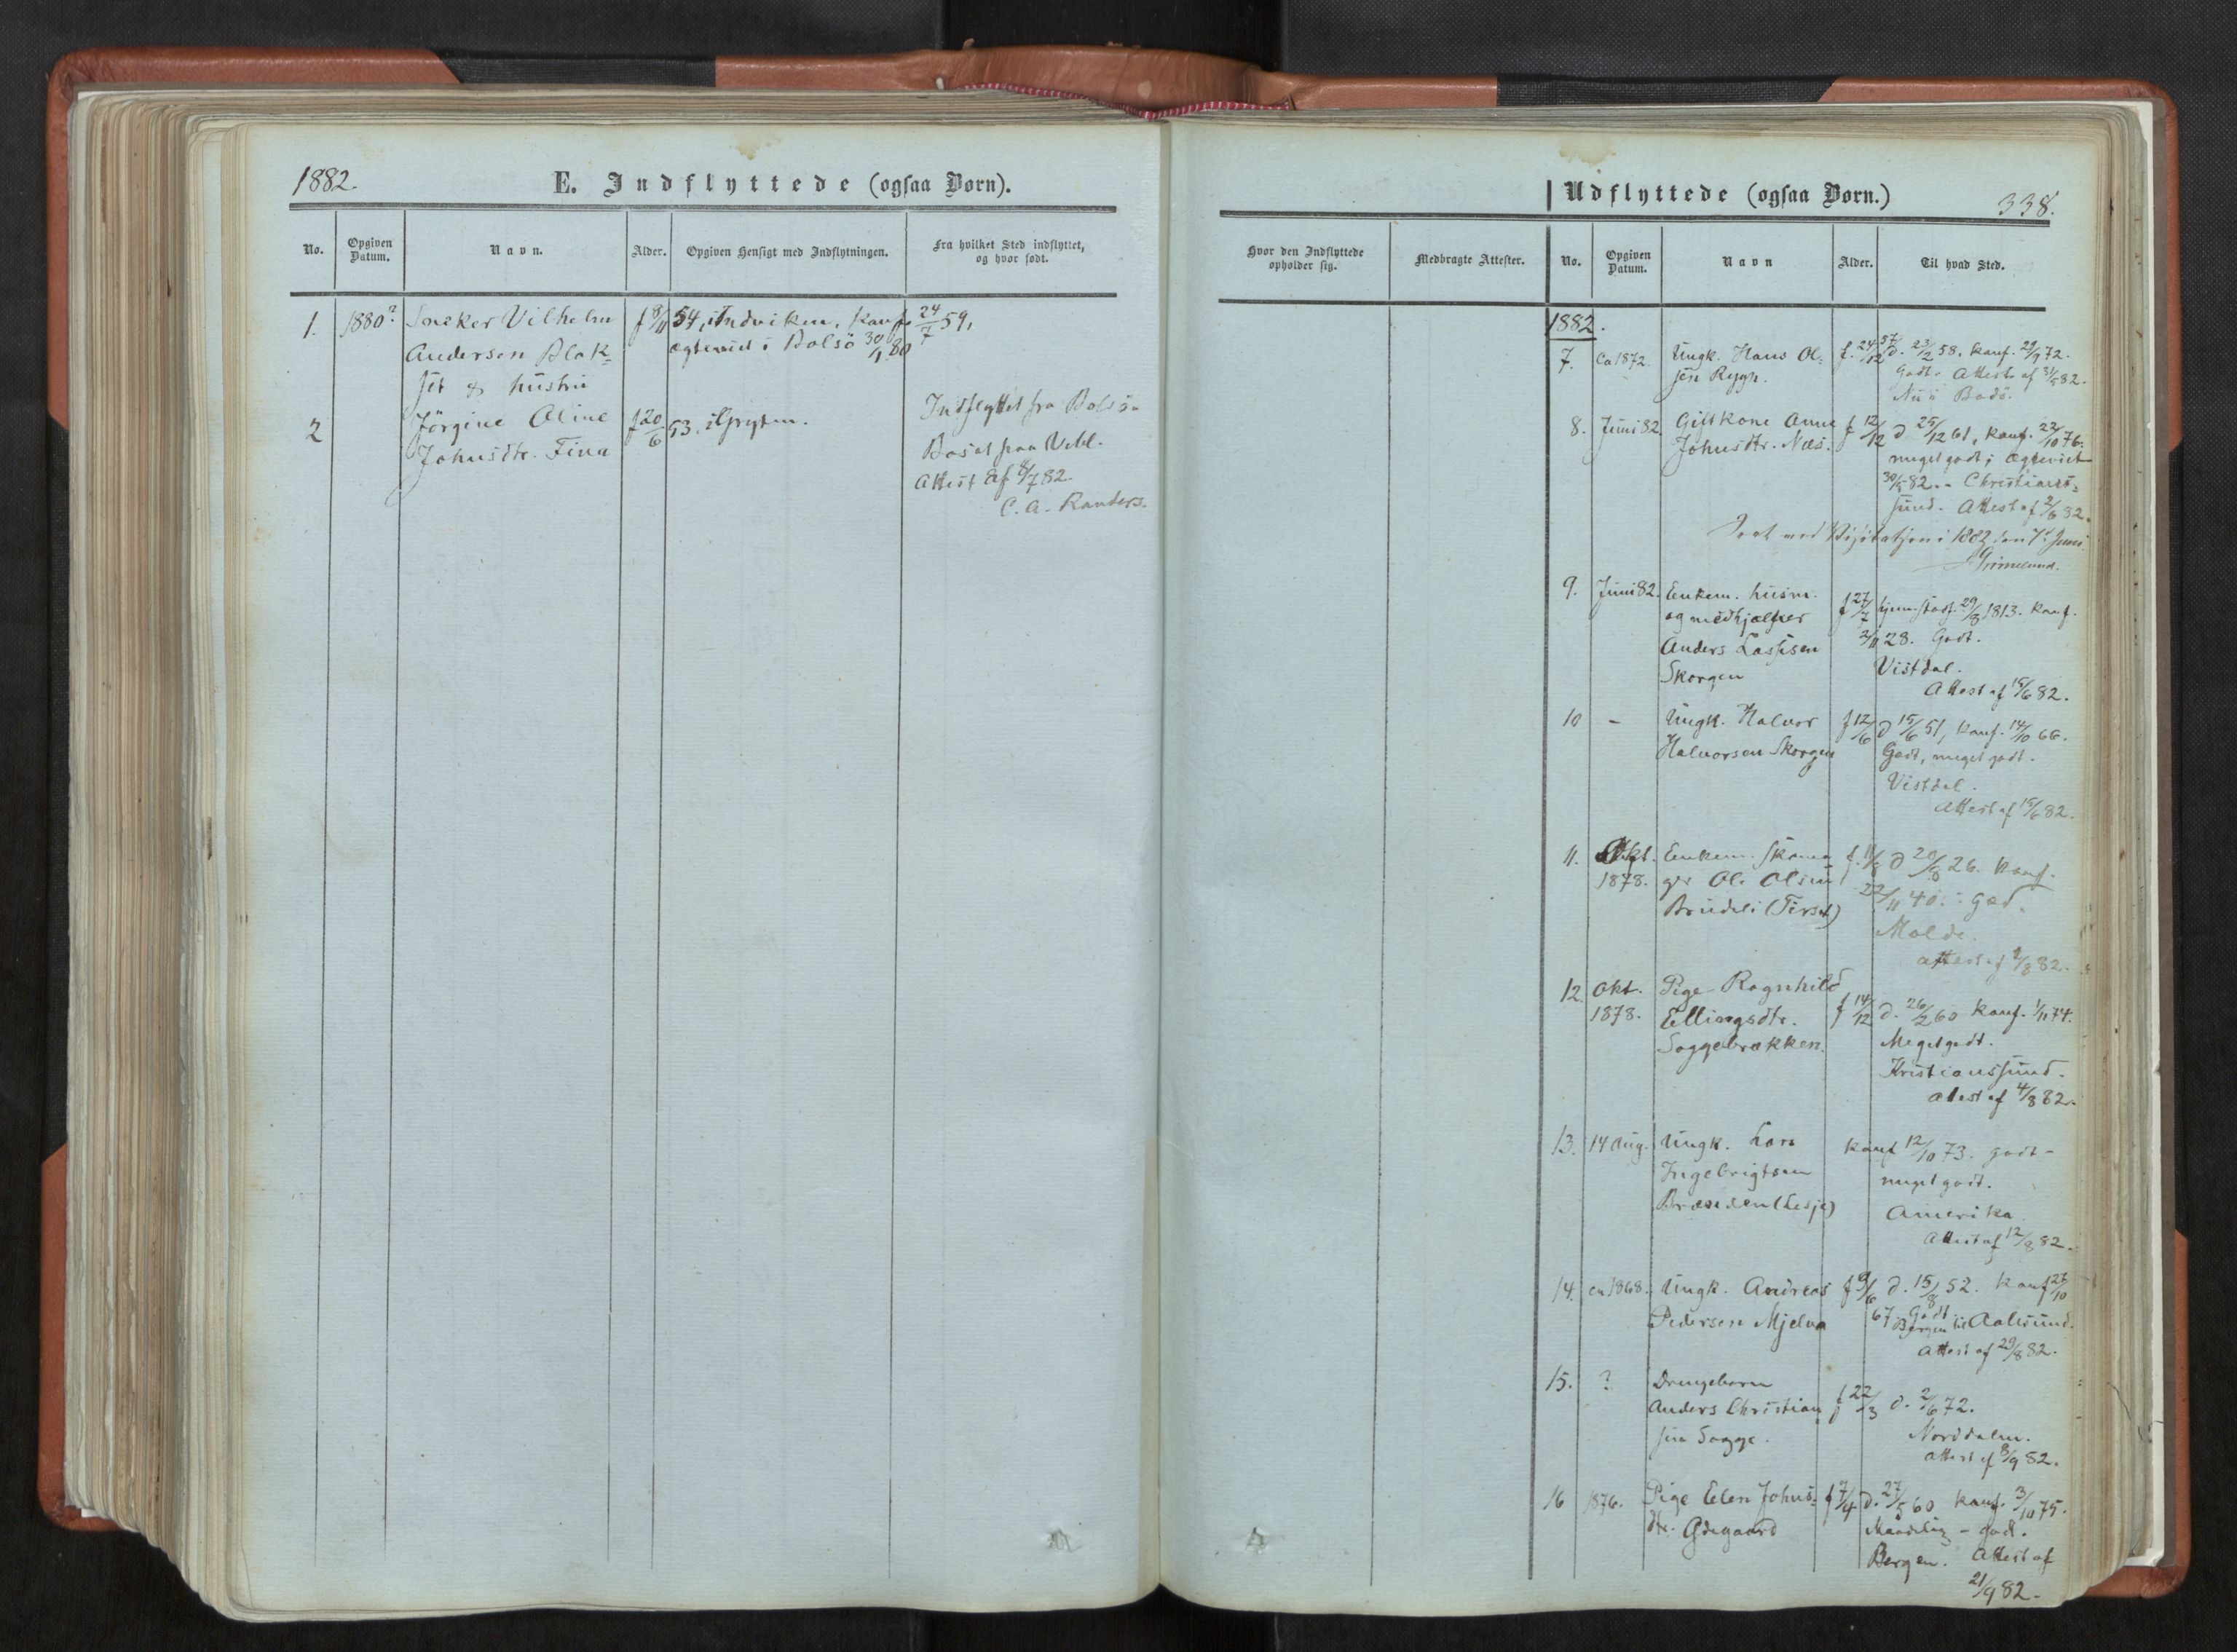 1882.
E. Indflyttede (ogsaa Børn).
No.
Opgiven Datum.
Navn.
Alder.
Opgiven Hensigt med Indflytningen.
Fra hvilket Sted indflyttet, og hvor født.
1. 1880? Sneker Vilhelm f 8/11 54, i Indviken, Konf. 24/7 59,
Andersen Blak- ægteviet i Bolsö 30/1 80
set & hustru
2 Jörgine Oline f 20/6 53. i Grytten.
Johnsdtr.
Indflyttet fra Bolsö.
Bosat paa Vebl.
Attest af 8/7 82.
C. A. Randers.
Udflyttede (ogsaa Børn.)
338.
Hvor den Indflyttede opholder sig.
Medbragte Attester.
No.
Opgiven Datum.
Navn
Alder.
Til hvad Sted.
1882.
7. Ca 1872. Ungk. Hans Ol- f. 24/12 57 d. 23/2 58. Konf. 29/9 72.
sen Rygh. Godt. Attest af 31/5 82.
Nu i Bodö.
8. Juni 82 Giftkone Anne f 12/12 d 25/12 61, Konf. 22/10 76.
Johnsdtr. Næs. meget godt; ægteviet
30/4 82. - Christians-
sund. Attest af 2/6 82.
Seet ved Visitatsen i 1882 den 7de Juni
Grimelund.
9. Juni 82. Enkem. husm. f 27/7 hjem. stadf. 29/8 1813. Konf.
og medhjælper 3/11 28. Godt.
Anders Lassesen Vistdal.
Skorgen Attest af 15/6 82.
10 - Ungk. Halvor f 12/6 d 15/6 51, Konf. 14/10 66.
Halvorsen Skorgen Godt, meget godt.
Vistdal.
Attest af 15/6 82.
11. Okt. Enkem. Skoma- f. 11/8 d 20/8 26. Konf.
1878. ger Ole Olsen 22/11 40. - God.
Brudeli (Tirset) Molde.
attest af 2/8 82.
12. Okt. Pige Ragnhild
1878. Ellingsdtr. f 14/12 d. 26/2 60 Konf. 1/11 74.
Soggebrækken. Meget godt.
Kristianssund.
attest af 4/8 82.
13. 14 Aug. Ungk. Lars Konf 12/10 73. godt -
Ingebrigtsen meget godt.
Brænden (Lesje) Amerika
Attest af 12/8 82.
14. ca 1868. Ungk. Andreas f 9/6 d. 15/8 52. Konf 27/10
Pedersen Mjelva 67 Godt. Bergen til Aalesund.
Attest af 29/8 82.
15. ? Drengebarn
Anders Christian f 22/3 d. 2/6 72.
sen Sogge. Norddalen.
attest af 8/9 82.
16 1876. Pige Elen Johns- f 7/4 d. 27/5 60 Konf. 3/10 75.
dtr. Ödegaard Maadelig - godt.
Bergen. Attest af
21/9 82.